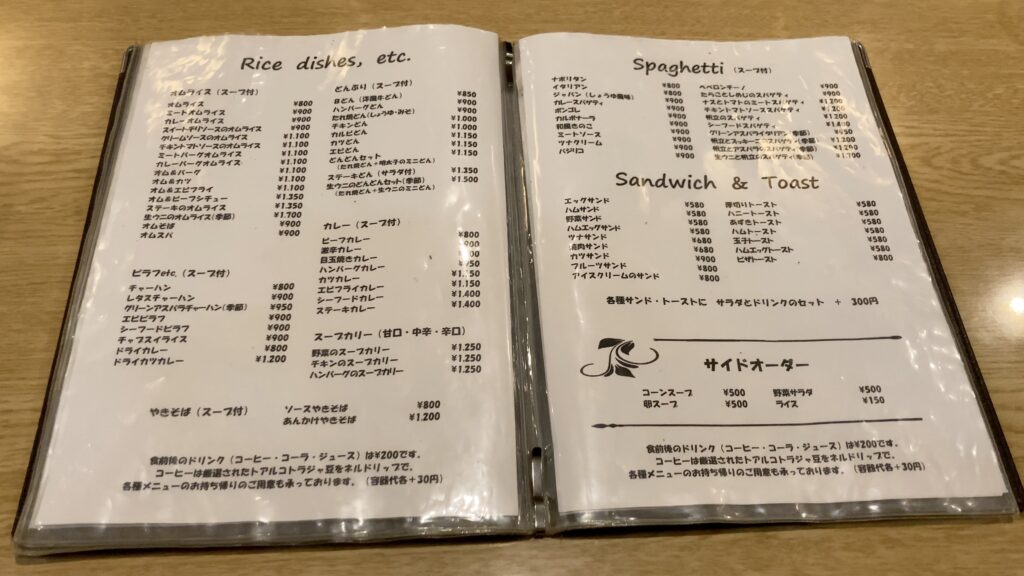 Rice dishes, etc.
オムライス（スープ付）
オムライス ¥800
ミートオムライス ¥900
カレーオムライス ¥900
スイートチリソースのオムライス ¥900
クリームソースのオムライス ¥1.100
チキントマトソースのオムライス ¥1.100
ミートバーグオムライス ¥1.100
カレーバーグオムライス ¥1.100
オム＆バーグ ¥1.100
オム＆カツ ¥1.100
オム＆エビフライ ¥1.100
オム＆ビーフシチュー ¥1.350
ステーキのオムライス ¥1.350
生ウニのオムライス(季節) ¥1.700
オムそば ¥900
オムスパ ¥900
ピラフetc.（スープ付）
チャーハン ¥800
レタスチャーハン ¥900
グリーンアスパラチャーハン(季節) ¥950
エビピラフ ¥900
シーフードピラフ ¥900
チャプスイライス ¥900
ドライカレー ¥800
ドライカツカレー ¥1.200
やきそば（スープ付）
ソースやきそば ¥800
あんかけやきそば ¥1.200
どんぶり（スープ付）
Bどん（洋風牛どん） ¥850
ハンバーグどん ¥900
たれ焼どん（しょうゆ・みそ） ¥900
チキンどん ¥1.000
カルビどん ¥1.000
カツどん ¥1.150
エビどん ¥1.150
どんどんセット
（たれ焼どん＋明太子のミニどん）
ステーキどん（サラダ付） ¥1.350
生ウニのどんどんセット(季節) ¥1.500
（たれ焼どん＋生ウニのミニどん）
カレー（スープ付）
ビーフカレー ¥800
激辛カレー
目玉焼きカレー
ハンバーグカレー
カツカレー
エビフライカレー ¥1.150
シーフードカレー ¥1.400
ステーキカレー ¥1.400
スープカリー（甘口・中辛・辛口）
野菜のスープカリー ¥1.250
チキンのスープカリー ¥1.250
ハンバーグのスープカリー ¥1.250
食前後のドリンク（コーヒー・コーラ・ジュース）は¥200です。
コーヒーは厳選されたトアルコトラジャ豆をネルドリップで、
各種メニューのお持ち帰りのご用意も承っております。（容器代各＋30円）
Spaghetti（スープ付）
ナポリタン
イタリアン ¥800
ジャパン（しょうゆ風味） ¥800
カレースパゲティ ¥900
ボンゴレ ¥900
カルボナーラ ¥900
和風きのこ ¥900
ミートソース ¥900
ツナクリーム ¥900
バジリコ ¥900
ペペロンチーノ
たらことしめじのスパゲティ
ナスとトマトのミートスパゲティ
チキントマトソーススパゲティ
帆立のスパゲティ ¥1.200
シーフードスパゲティ
グリーンアスパライタリアン(季節)
帆立とズッキーニのスパゲティ(季節)
帆立とアスパラのスパゲティ(季節)
生ウニと帆立のスパゲティ(季節)
Sandwich & Toast
エッグサンド ¥580
ハムサンド ¥580
野菜サンド ¥580
ハムエッグサンド ¥580
ツナサンド ¥580
焼肉サンド ¥680
カツサンド ¥900
フルーツサンド ¥800
アイスクリームのサンド ¥800
厚切りトースト ¥580
ハニートースト ¥580
あずきトースト ¥580
ハムトースト ¥580
玉子トースト ¥580
ハムエッグトースト ¥680
ピザトースト ¥800
各種サンド・トーストに サラダとドリンクのセット ＋ 300円
サイドオーダー
コーンスープ ¥500 野菜サラダ ¥500
卵スープ ¥500 ライス ¥150
食前後のドリンク（コーヒー・コーラ・ジュース）は¥200です。
コーヒーは厳選されたトアルコトラジャ豆をネルドリップで、
各種メニューのお持ち帰りのご用意も承っております。（容器代各＋30円）